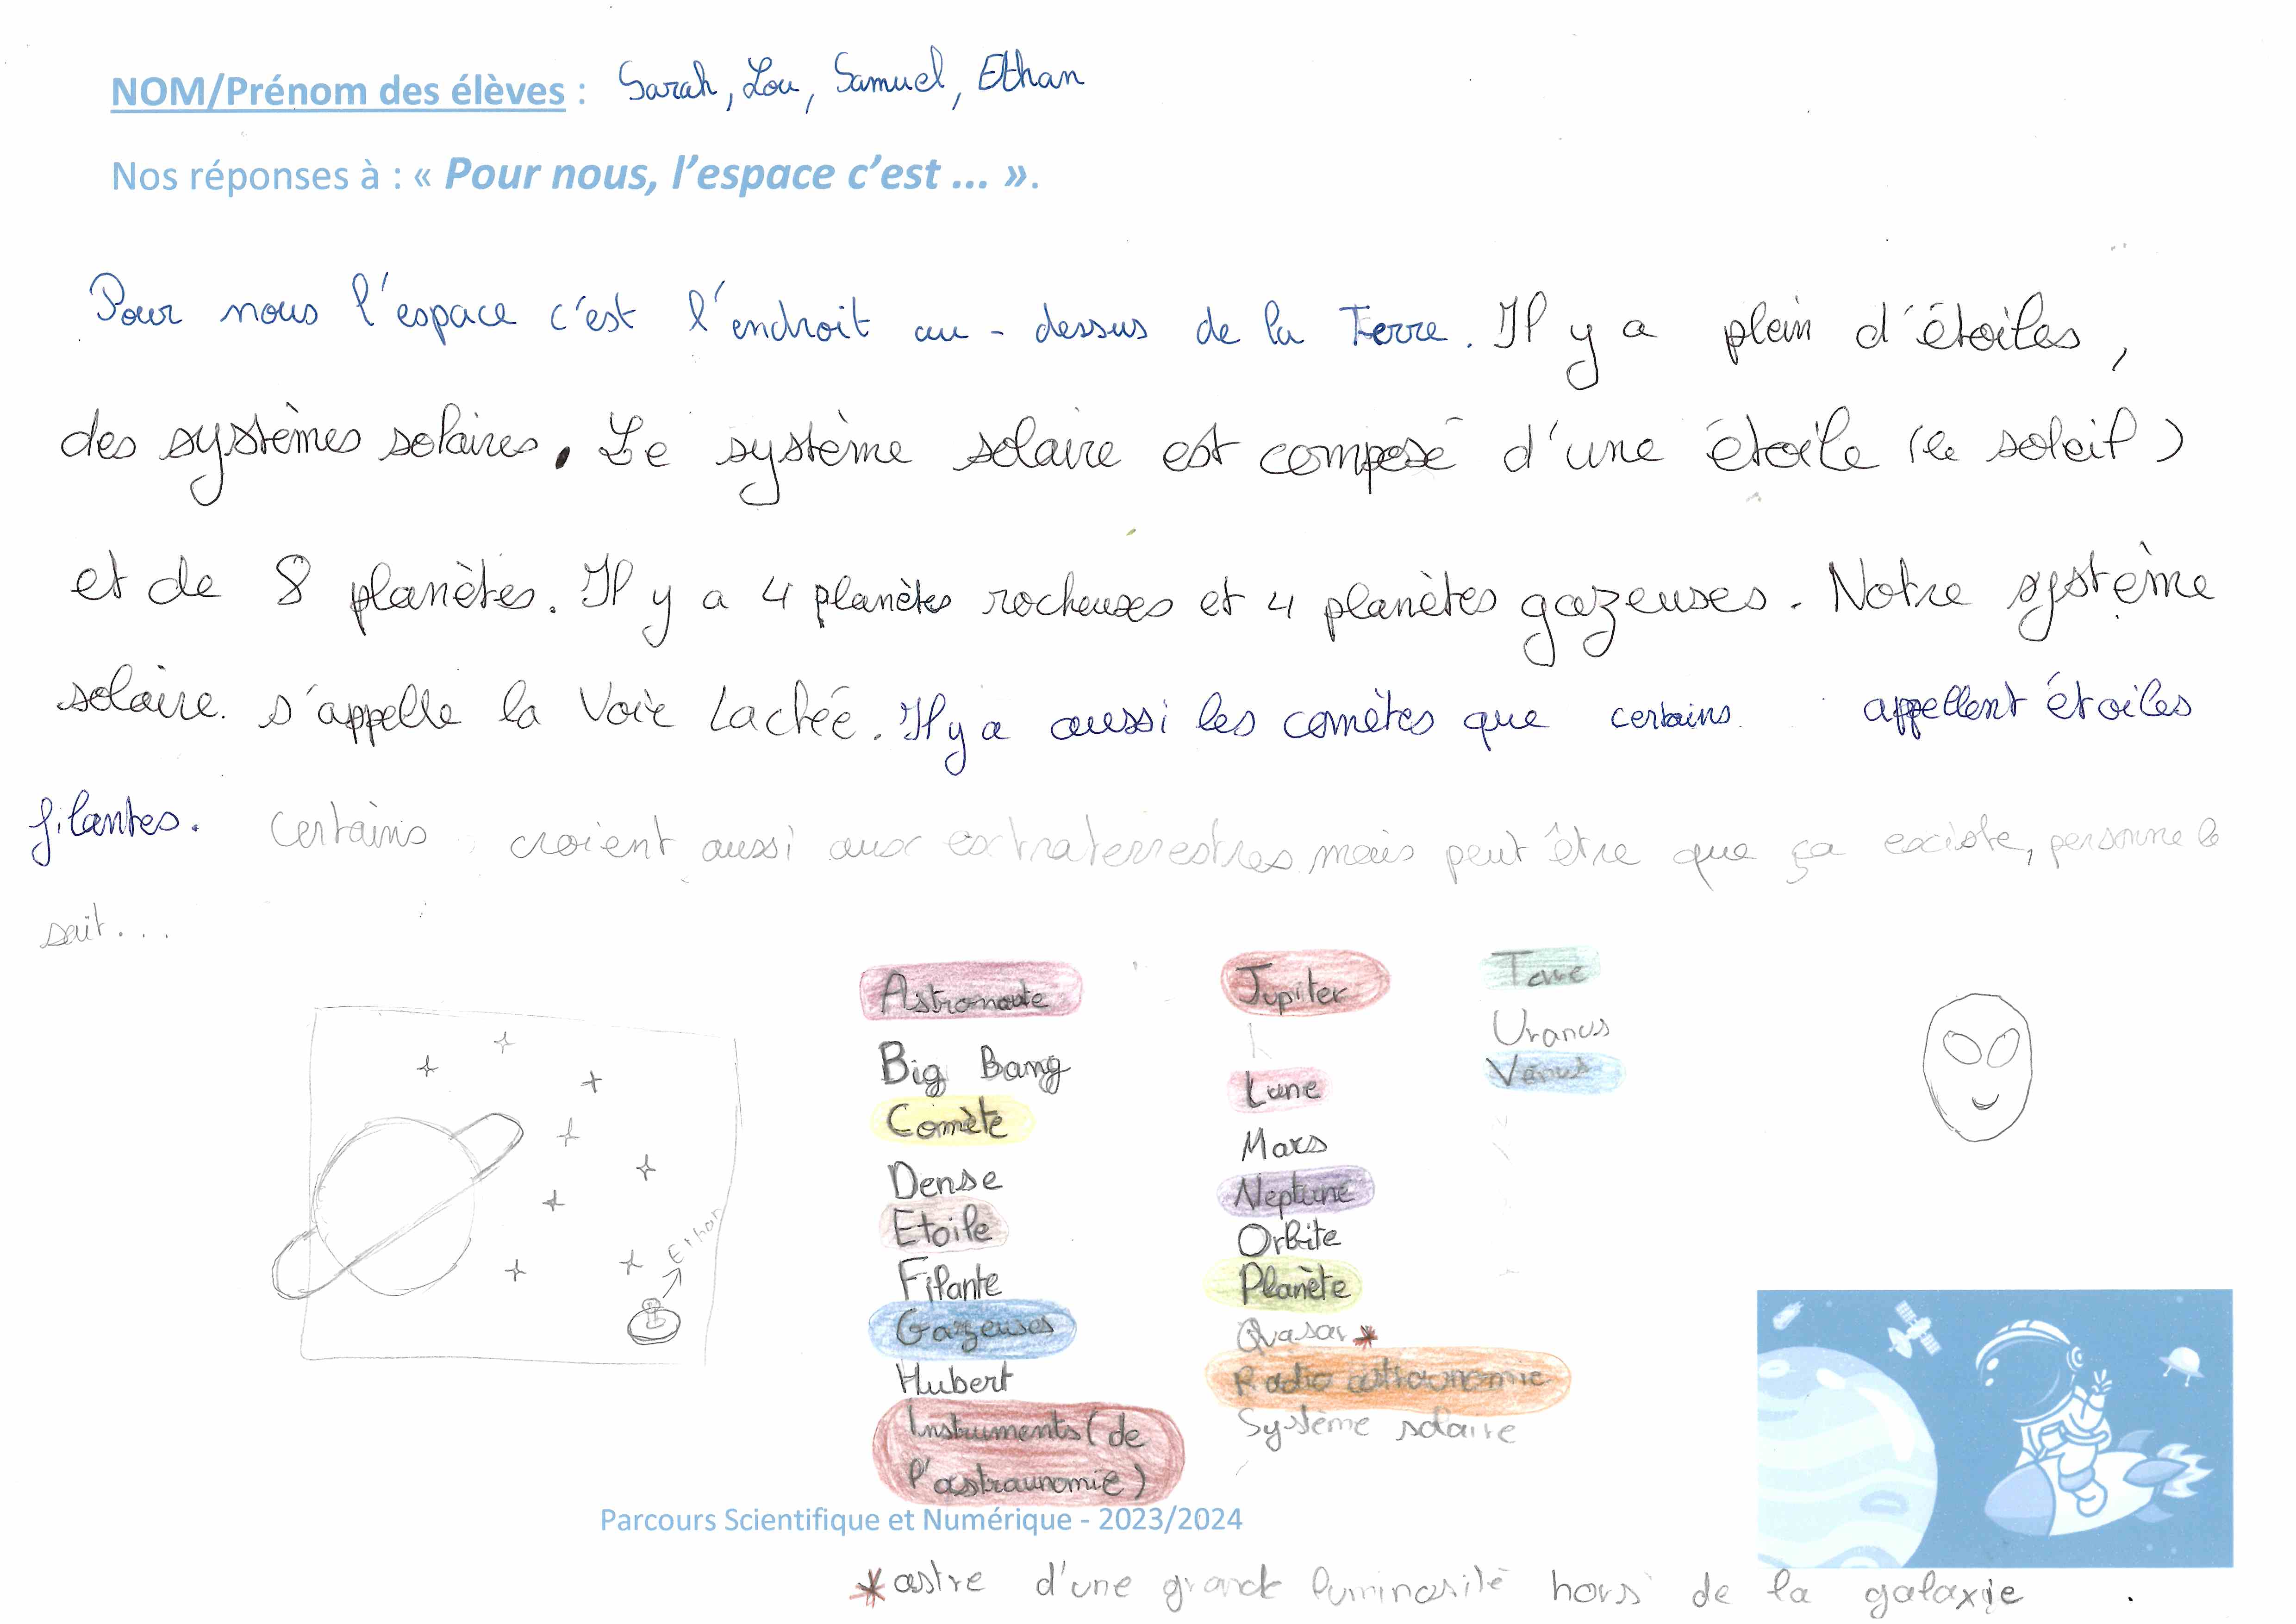 NOM/Prénom des élèves : Sarah, Lou, Samuel, Ethan
Nos réponses à : « Pour nous, l'espace c'est ... ».
Pour nous l'espace c'est l'endroit au-dessus de la Terre. Il y a plein d'étoiles,
des systèmes solaires. Le système solaire est composé d'une étoile (le soleil)
et de 8 planètes. Il y a 4 planètes rocheuses et 4 planètes gazeuses. Notre système
solaire s'appelle la Voie Lactée. Il y a aussi les comètes que certains appellent étoiles
filantes. Certains croient aussi aux extraterrestres mais peut être que ça existe, personne le
sait...
Astronaute
Big Bang
Comète
Dense
Etoile
Filante
Gazeuses
Hubert
Instruments (de
l'astraunomie)
Jupiter
Lune
Mars
Neptune
Orbite
Planète
Quasar*
Radio astraunomie
Système solaire
Terre
Uranus
Vénus
Ethan
Parcours Scientifique et Numérique - 2023/2024
*astre d'une grande luminosité hors de la galaxie.